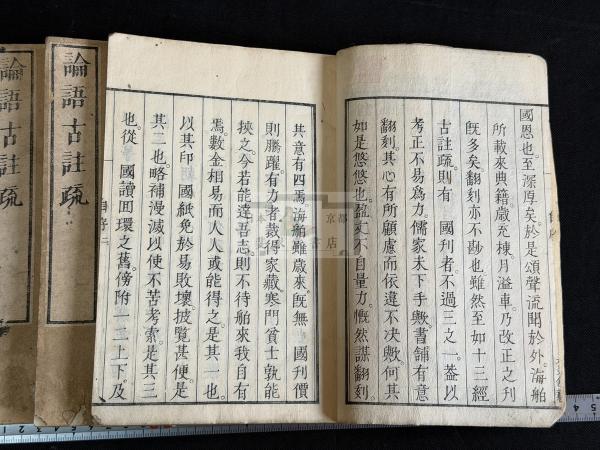 國恩也至深厚矣於是頌聲流聞於外海舶
所載來典籍歲充棟月溢車乃改正之刊
既多矣翻刻亦不尠也雖然至如十三經
古註疏則有 國刊者不過三之一葢以
考正不易爲力儒家未下手歟書舗有意
翻刻其心有所顧慮而依違不決歟何其
如是悠悠也盈丈不自量力慨然謀翻刻
其意有四焉海舶雖歲來既無 國刊價
則騰躍有力者裁得家藏寒門貧士孰能
挾之今若能遂吾志則不待舶來我自有
焉數金相易而人人或能得之是其一也
以其印 國紙免於易敗壞披覽甚便是
其二也略補漫滅以使不苦考索是其三
也從 國讀回環之舊傍附一二上下及
論語古註疏
論語古註疏